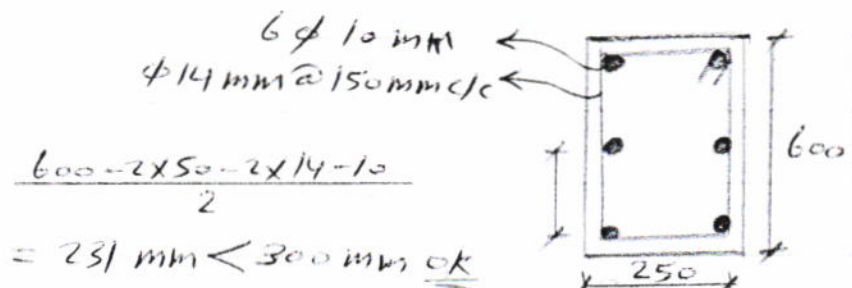 6 φ 10 mm
φ 14 mm @ 150 mm c/c
600
600 - 2x50 - 2x14 - 10
2
= 231 mm < 300 mm ok
250